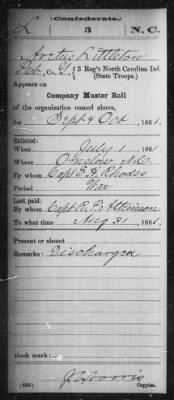 Confederate.
L 3 N. C.
Littleton
Pvt, Co. 3 Reg't North Carolina Inf.
(State Troops.)
Appears on
Company Muster Roll
of the organization named above,
for Sept & Oct, 1861.
Enlisted:
When July 1, 1861.
Where Onslow N.C.
By whom Capt E. H. Rhodes
Period War
Last paid:
By whom Capt R. P. Atkinson
To what time Aug 31, 1861.
Present or absent
Remarks: Discharged
Book mark:
(661)
Copyist.